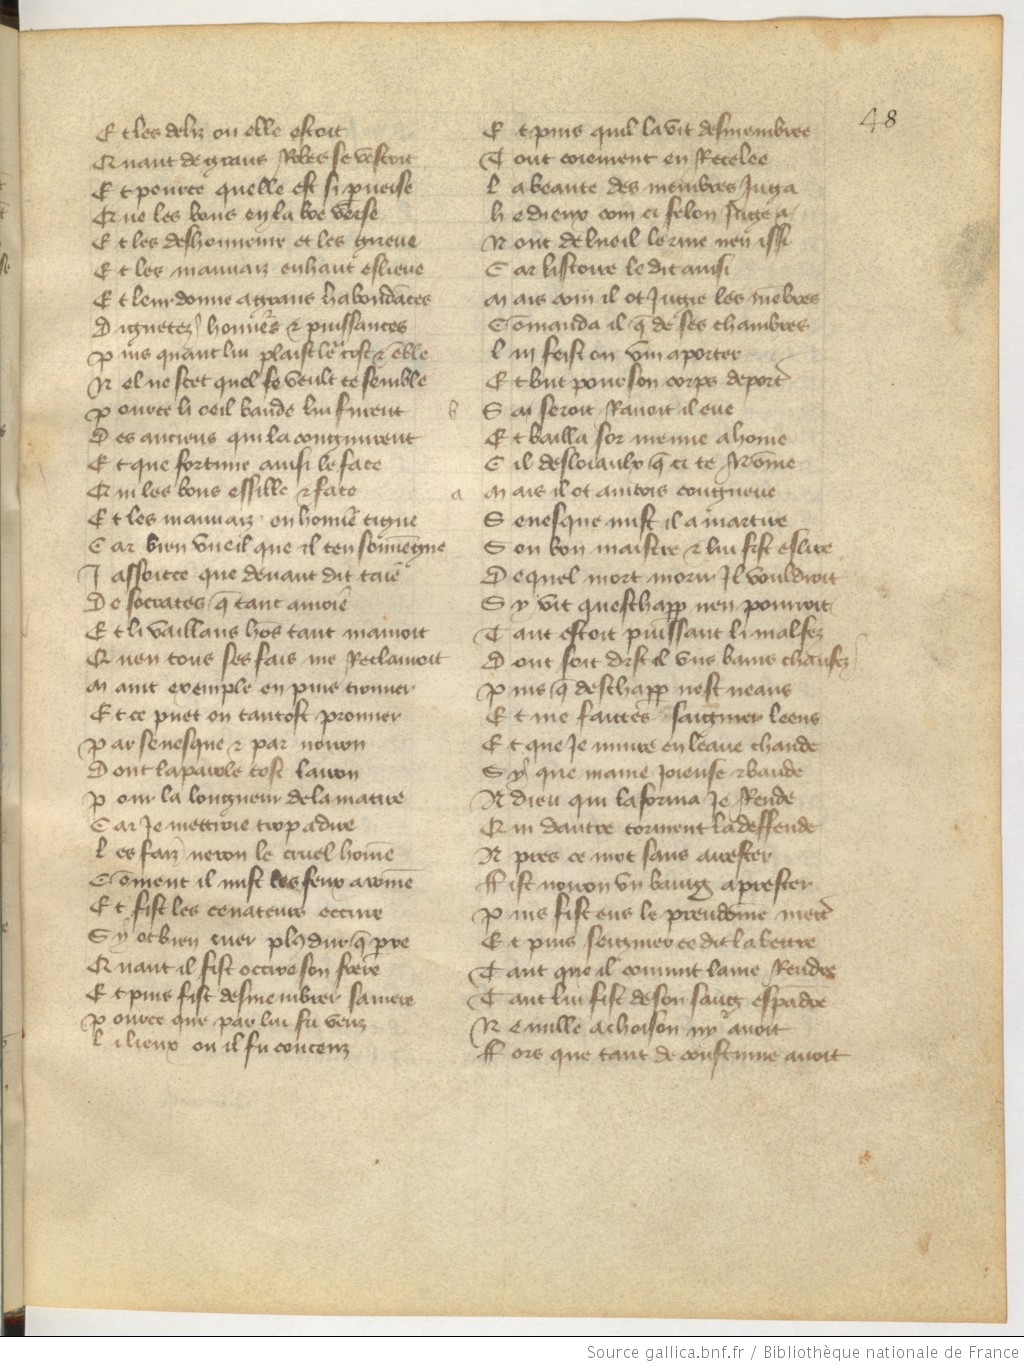 48
Et les deliz ou elle estoit
Quant de grans Robes se vestoit
Et pource quelle est si pueise
Que les bons en la boe verse
Et les deshonneure et les grieue
Et les mauuaiz enhaut eslieue
Et leur donne a grans habondāces
Dignetez honners et puissances
Puis quant lui plaist le tost et ēble
Nel ne scet quel se veult ce semble
Pource li oeil bande lui furent
Des anciens qui la congnurent
Et que fortune ainsi le face
Qui les bons essille et face
Et les mauuaiz en honnē tigne
Car bien vueil que il ten souuēgne
Jassoitce que deuant dit taie
De socrates q̄ tant amoie
Et li vaillans hōs tant mamoit
Quen tous ses fais me Reclamoit
Maint exemple en puis trouuer
Et ce puet on tantost prouuer
Par senesque et par noiron
Dont laparole tost lairon
Pour la longueur de la matire
Car Je mettroie trop adire
Les faiz neron le cruel homē
Cōment il mist les feux arōme
Et fist les cenateurs occirre
Sy ot bien cuer plꝰ dur q̄ pre
Quant il fist occire son frere
Et puis fist desmembrer samere
Pource que par lui fu veuz
Li lieux ou il fu conceuz
Et puis quil la vit desmembree
Tout coiement en Recelee
La beaute des membres Juga
he dieux com ci felon Juge a
Nont de lueil lerme nen issi
Car listoire le dit ainsi
Mais com il ot Jugie les mēbres
Cōmanda il q̄ de ses chambres
Lui feist on vin aporter
Et but pour son corps deporter
b Sai seroit Rauoit il eue
Et bailla sor meime a home
Cil desloiaulx q̄ ci te Nōme
a Mais il ot aincois congneue
Senesque mist il a martire
Son bon maistre et lui fist eslire
De quel mort morir Il vouldroit
Sy vit queschapp nen pourroit
Tant estoit puissant li malfez
Dont soit dist il vns bains chaufez
Puis q̄ deschapp nest neans
Et me faictes saigner leens
Et que Je muire en leaue chaude
Sy que mame ioieuse et baude
A dieu qui laforma Je Rende
Qui dautre torment la deffende
Apres ce mot sans arrester
ffist noiron vn baing aprester
Puis fist ens le preudōme metre
Et puis seigner ce dit la lettre
Tant que il conuint lame Rendre
Tant lui fist de son sang espādre
Ne nulle achoison ny auoit
ffors que tant de coustume auoit
Source gallica.bnf.fr / Bibliothèque nationale de France